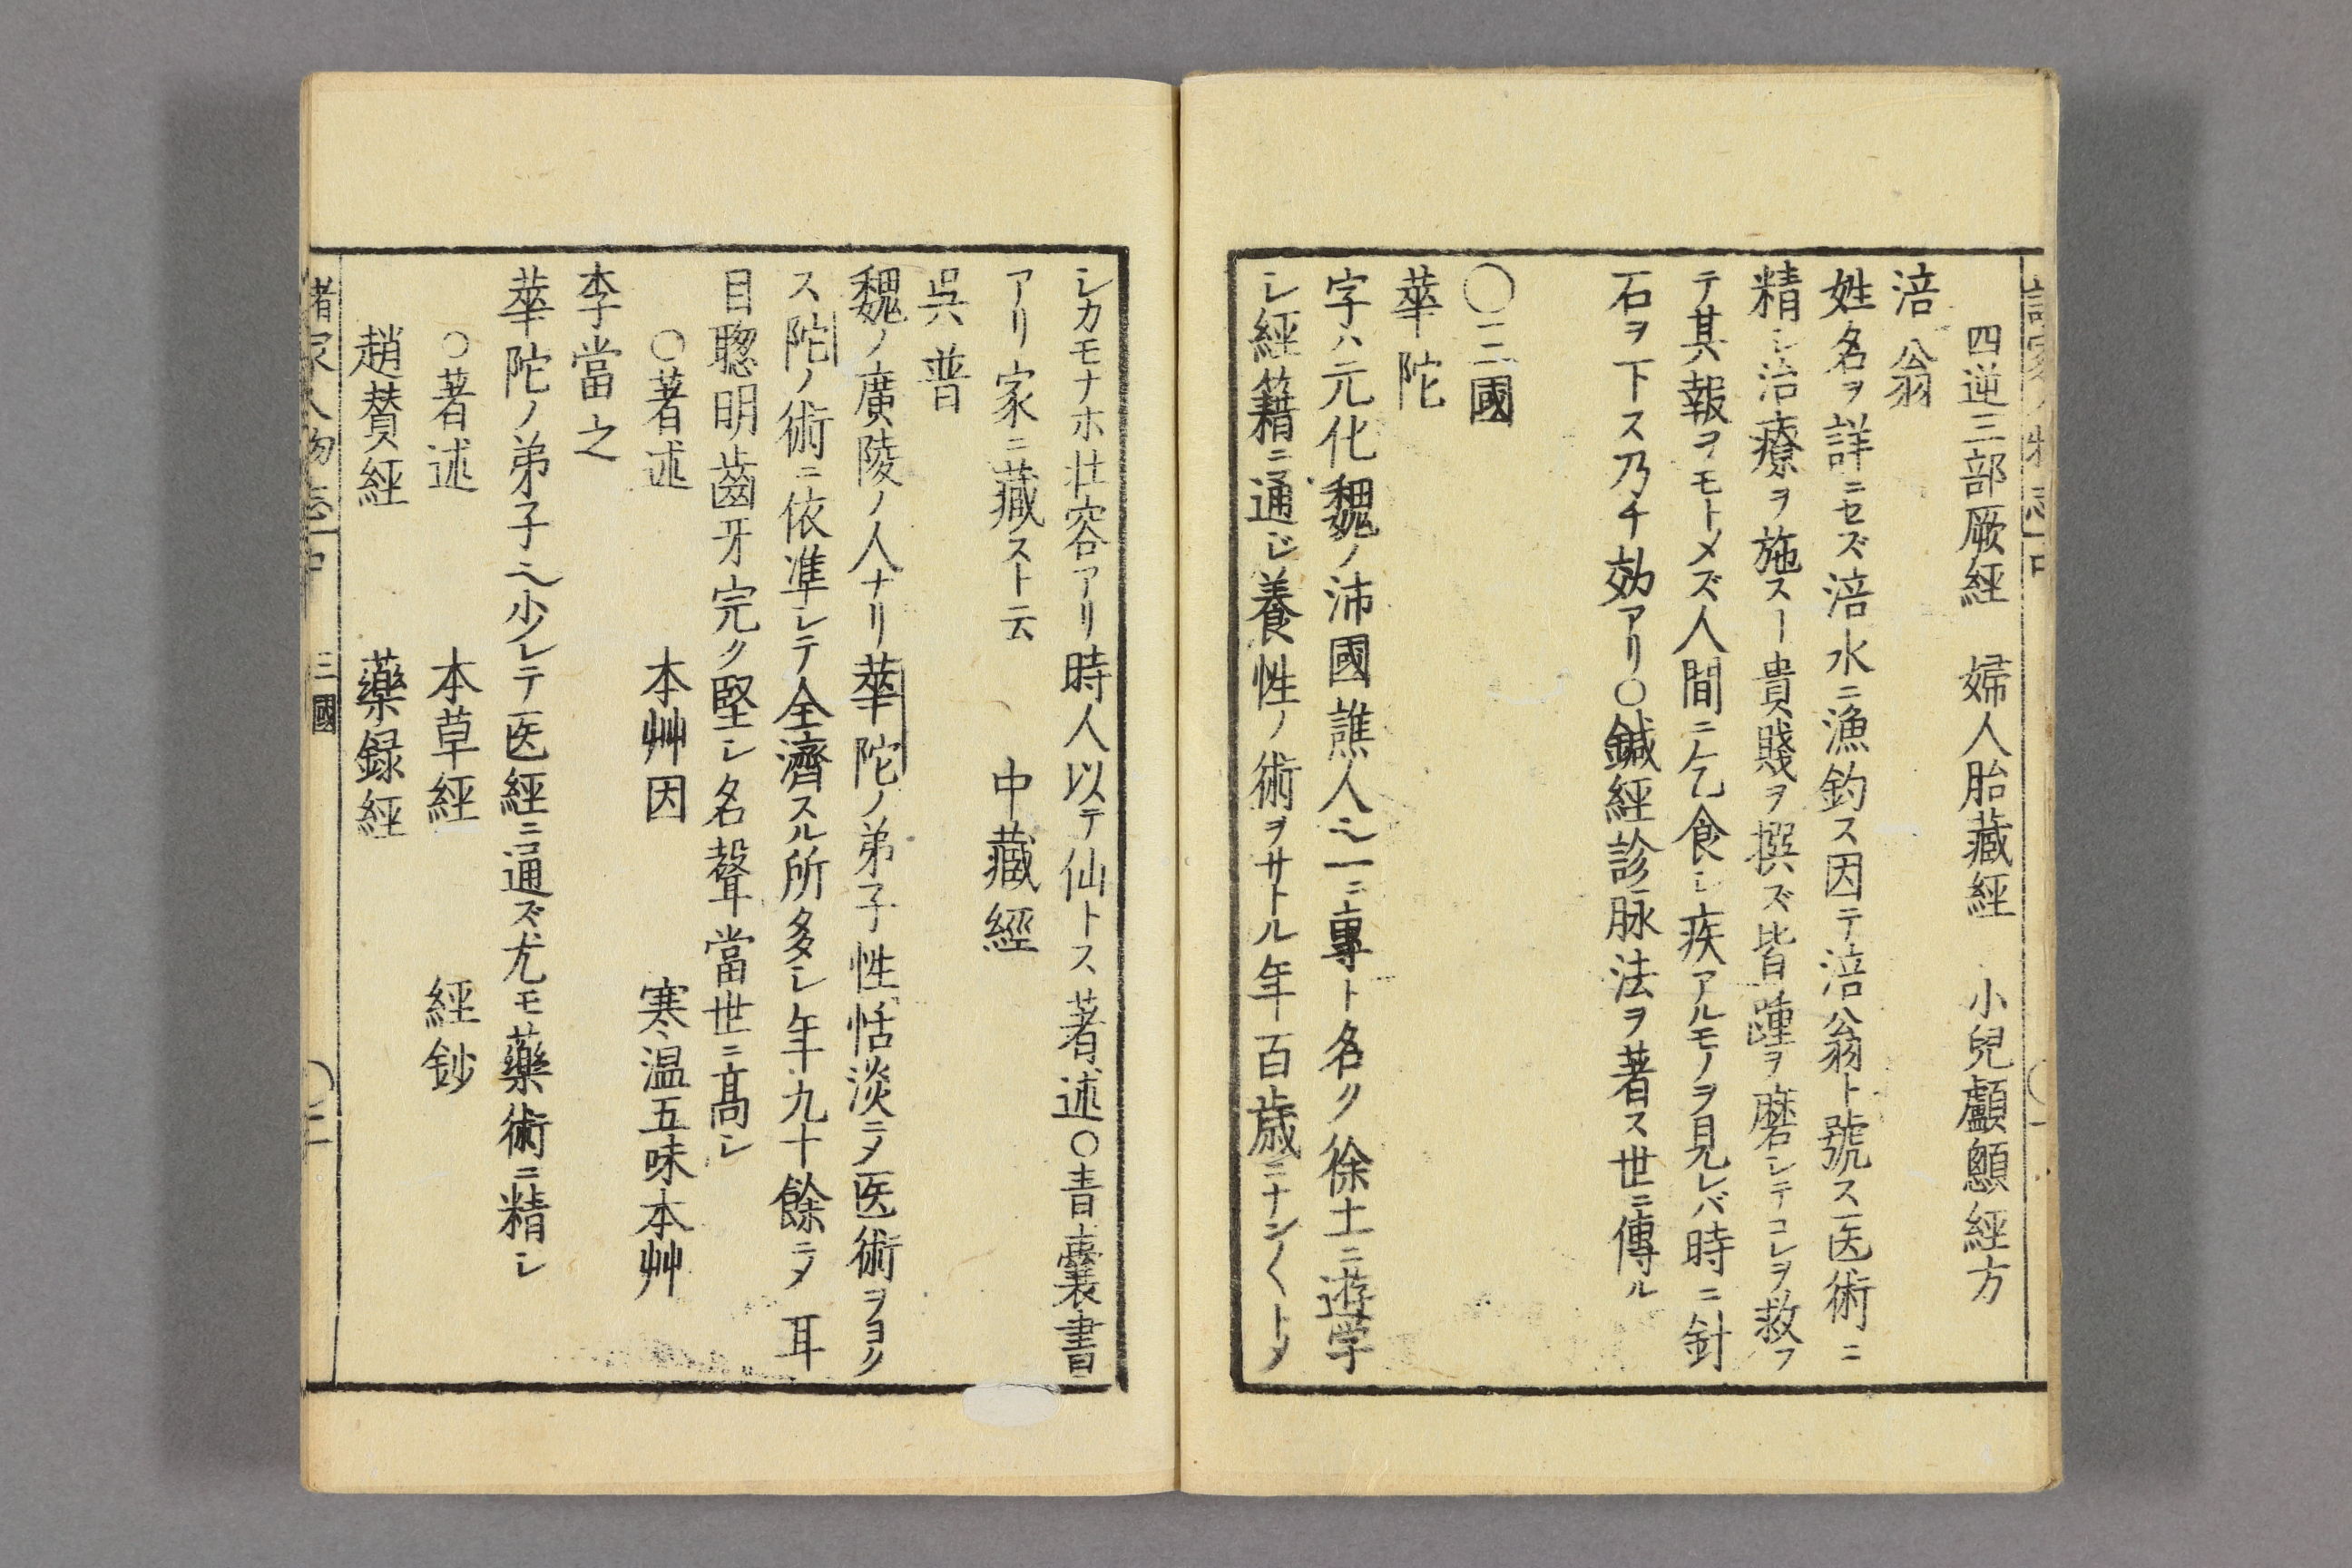 四逆三部厥經　婦人胎藏經　小兒顱顖經方
涪翁
姓名ヲ詳ニセズ涪水ニ漁釣ス因テ涪翁ト號ス医術ニ
精シ治療ヲ施スヿ貴賤ヲ撰ズ皆踵ヲ磨シテコレヲ救フ
テ其報ヲモトメズ人間ニ乞食シ疾アルモノヲ見レバ時ニ針
石ヲ下ス乃チ効アリ○鍼經診脉法ヲ著ス世ニ傳ル
○三國
華陀
字ハ元化魏ノ沛國譙人也一ニ專ト名ク徐土ニ遊学
シ經籍ニ通ジ養性ノ術ヲサトル年百歳ニナンくトメ
シカモナホ壮容アリ時人以テ仙トス著述○青囊書
アリ家ニ藏スト云　中藏經
呉普
魏ノ廣陵ノ人ナリ華陀ノ弟子性恬淡ニメ医術ヲヨク
ス陀ノ術ニ依準シテ全濟スル所多シ年九十餘ニメ耳
目聰明齒牙完ク堅シ名聲當世ニ高シ
○著述　本艸因　寒温五味本艸
李當之
華陀ノ弟子也少シテ医經ニ通ズ尤モ藥術ニ精シ
○著述　本草經　經鈔
趙賛經　藥録經
諸家人物志中　三國